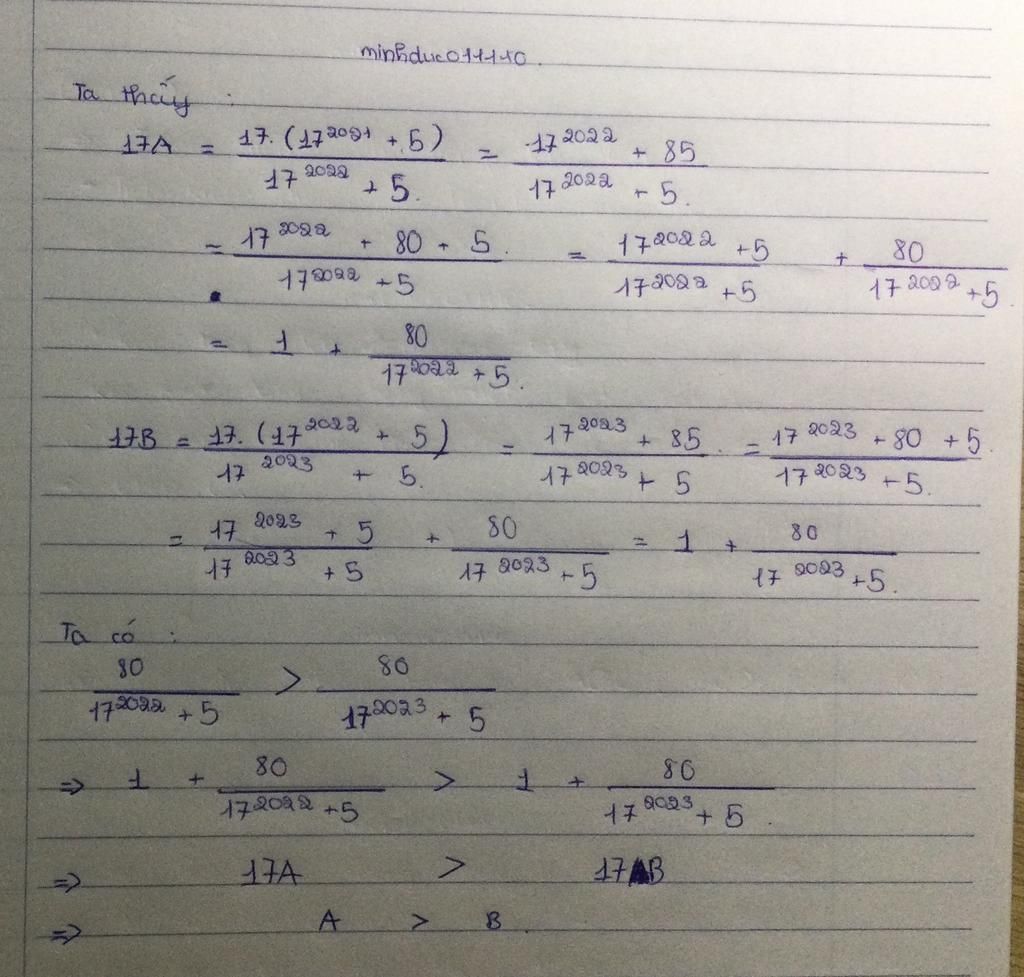 minhduc011110.
Ta thấy :
17A = 17. (17^2021 + 5) / 17^2022 + 5. = 17^2022 + 85 / 17^2022 + 5.
= 17^2022 + 80 + 5. / 17^2022 + 5 = 17^2022 + 5 / 17^2022 + 5 + 80 / 17^2022 + 5.
= 1 + 80 / 17^2022 + 5.
17B = 17. (17^2022 + 5) / 17^2023 + 5. = 17^2023 + 85. / 17^2023 + 5 = 17^2023 + 80 + 5. / 17^2023 + 5.
= 17^2023 + 5 / 17^2023 + 5 + 80 / 17^2023 + 5 = 1 + 80 / 17^2023 + 5.
Ta có :
80 / 17^2022 + 5 > 80 / 17^2023 + 5
⇒ 1 + 80 / 17^2022 + 5 > 1 + 80 / 17^2023 + 5.
⇒ 17A > 17B
⇒ A > B.